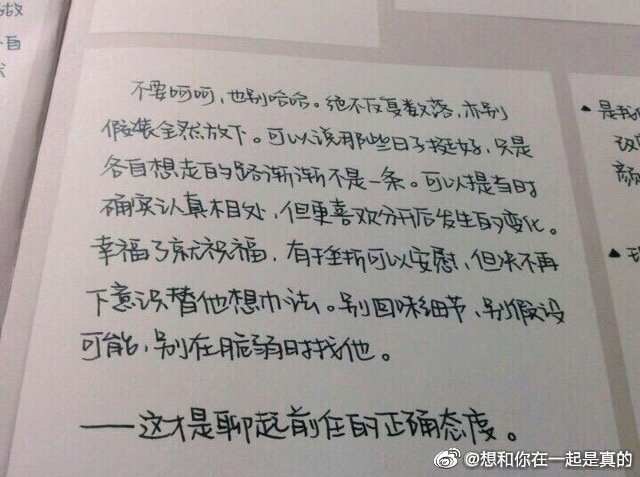 放
自
不要呵呵，也别哈哈。绝不反复数落，亦别
假装全然放下。可以说那些日子挺好，只是
各自想走的路渐渐不是一条。可以提当时
确实认真相处，但更喜欢分开后发生的变化。
幸福了就祝福，有挫折可以安慰，但决不再
下意识替他想办法。别回味细节、别假设
可能，别在脆弱时找他。
——这才是聊起前任的正确态度。
▲是我
颜
▲现
@想和你在一起是真的